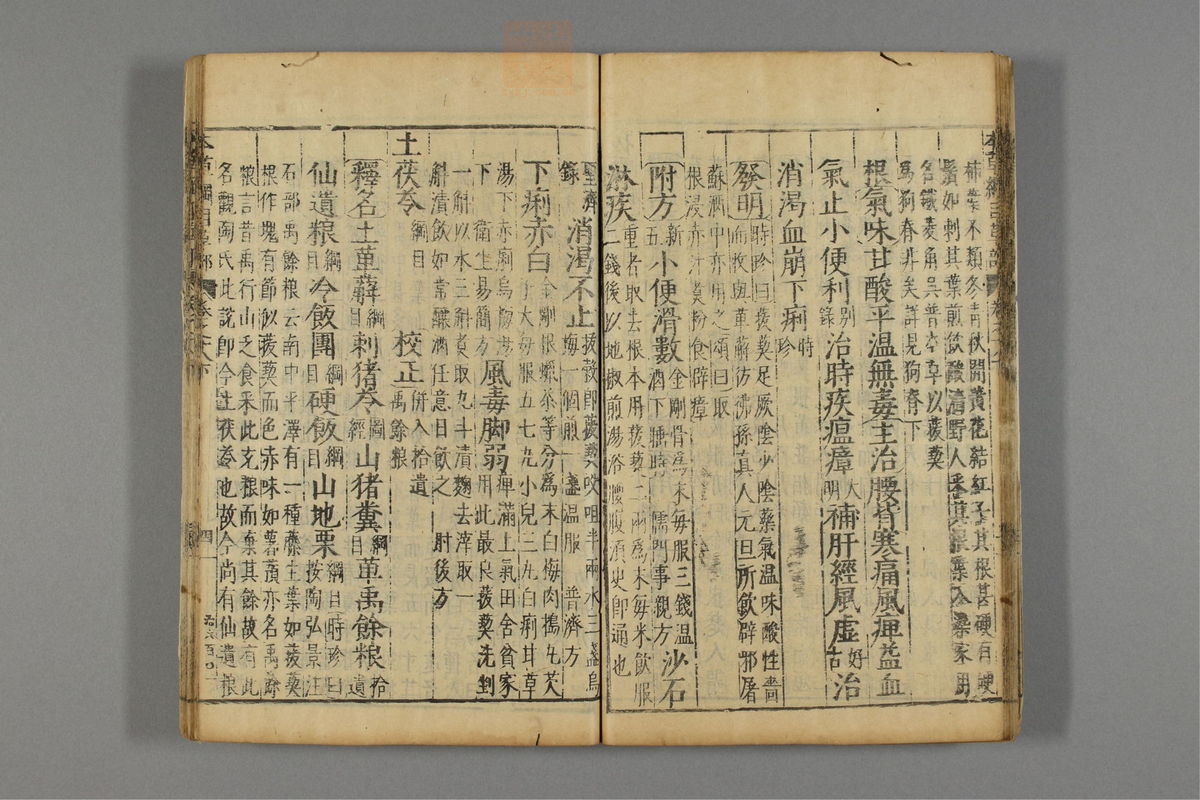 柿葉不類冬青秋開黃花結紅子其根甚硬有硬
鬚如刺其葉煎飲酸澁野人采其根葉入染家用
名鐵菱角吳普本草以菝葜
爲狗脊非矣詳見狗脊下
根氣味甘酸平溫無毒主治腰背寒痛風痺益血
氣止小便利別錄治時疾瘟瘴大明補肝經風虛好古治
消渴血崩下痢時珍
發明時珍曰菝葜足厥陰少陰藥氣溫味酸性嗇
而收與萆薢彷彿孫眞人元旦所飲辟邪屠
蘇酒中亦用之頌曰取
根浸赤汁煑粉食辟瘴
附方新五小便滑數金剛骨爲末每服三錢溫
酒下睡時 儒門事親方沙石
淋疾重者取去根本用菝葜二兩爲末每米飲服
二錢後以地椒煎湯浴腰腹須臾卽通也
聖濟
錄 消渴不止菝葜卽菝葜㕮咀半兩水三盞烏
梅一個煎一盞溫服 普濟方
下痢赤白金剛根蠟茶等分爲末白梅肉搗丸芡
子大每服五七丸小兒三丸白痢甘草
湯下赤痢烏梅湯
下 衛生易簡方 風毒脚弱痺滿上氣田舍貧家
用此最良菝葜洗剉
一斛以水三斛煑取九斗漬麴去滓取一
斛漬飲如常釀酒任意日飲之 肘後方
土茯苓綱目 校正併入拾遺
禹餘粮
釋名土萆薢綱目刺猪苓圖經山猪糞綱目草禹餘粮拾遺
仙遺粮綱目冷飯團綱目硬飯綱目山地栗綱目時珍曰
按陶弘景注
石部禹餘粮云南中平澤有一種藤生葉如菝葜
根作塊有節似菝葜而色赤味如薯蕷亦名禹餘
粮言昔禹行山乏食采此充粮而棄其餘故有此
名觀陶氏此說卽今土茯苓也故今尚有仙遺粮